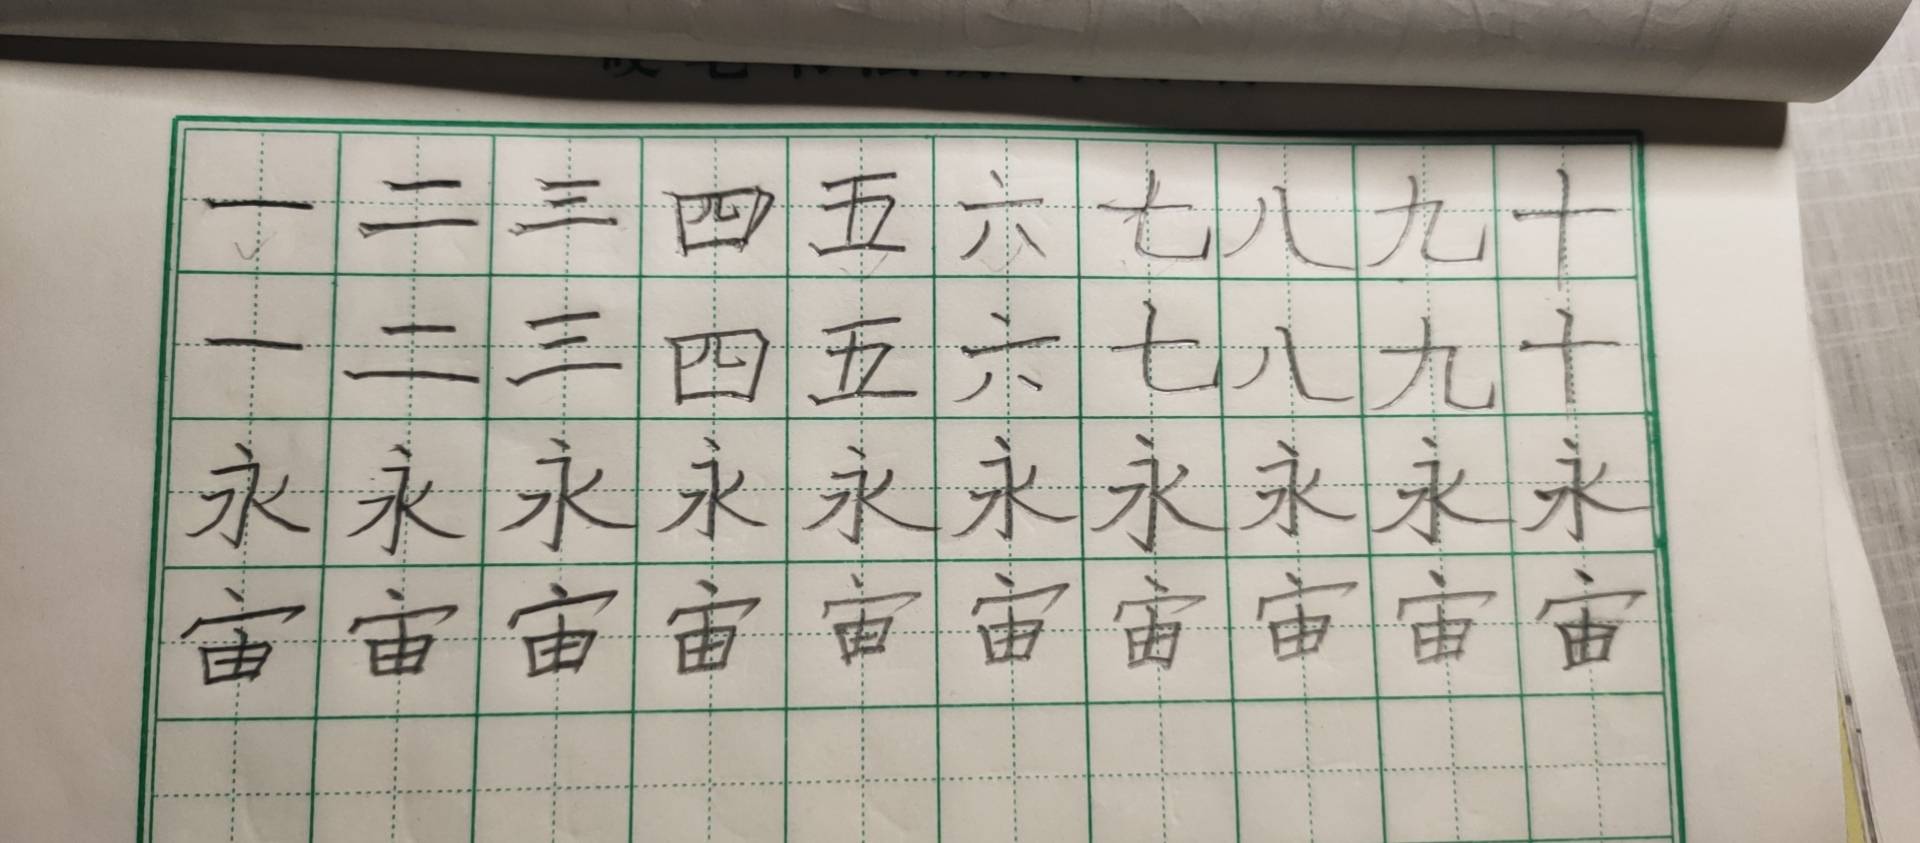 一二三四五六七八九十
一二三四五六七八九十
永永永永永永永永永永
宙宙宙宙宙宙宙宙宙宙